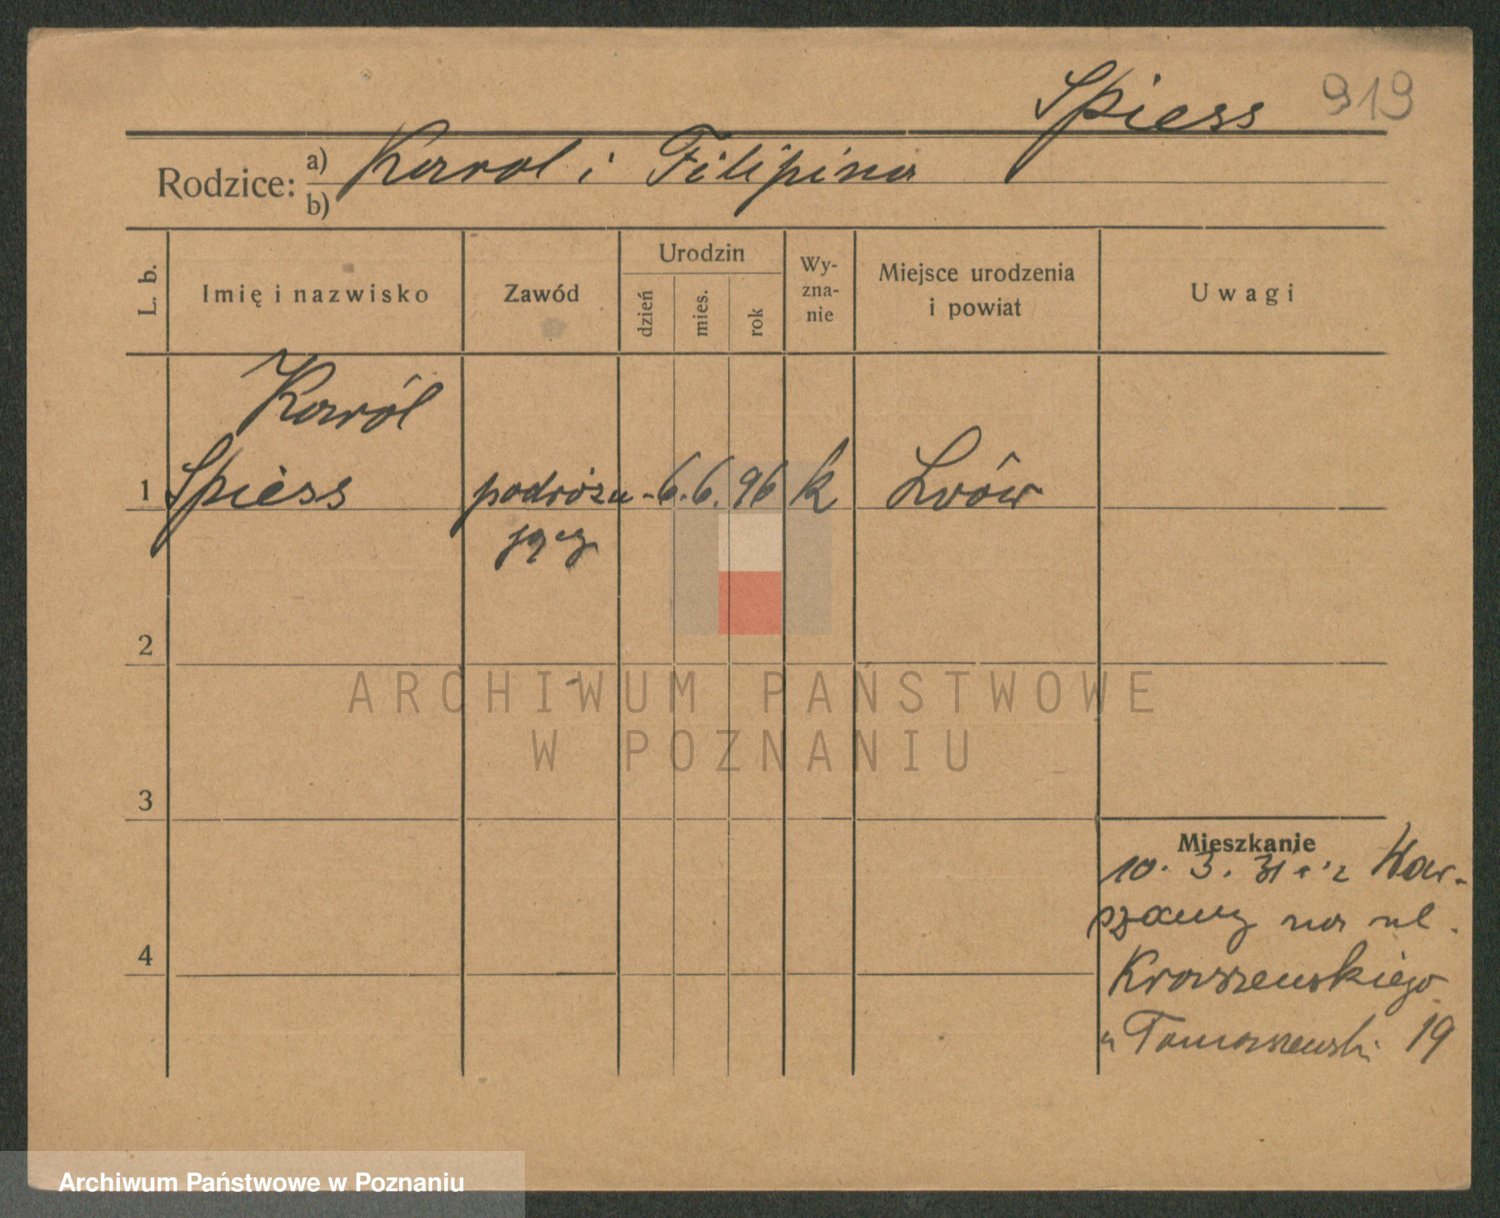 Spiess 919
Rodzice: a) Karol i Filipina
b)
L. b.
Imię i nazwisko
Zawód
Urodzin
dzień
mies.
rok
Wy-
zna-
nie
Miejsce urodzenia
i powiat
Uwagi
Karól
1 Spiess podróżu- 6. 6. 96 k Lwów
jący
2
3
4
Mieszkanie
10. 3. 31 z War-
szawy na ul.
Kraszewskiego
u Tomaszewski 19
ARCHIWUM PAŃSTWOWE
W POZNANIU
Archiwum Państwowe w Poznaniu